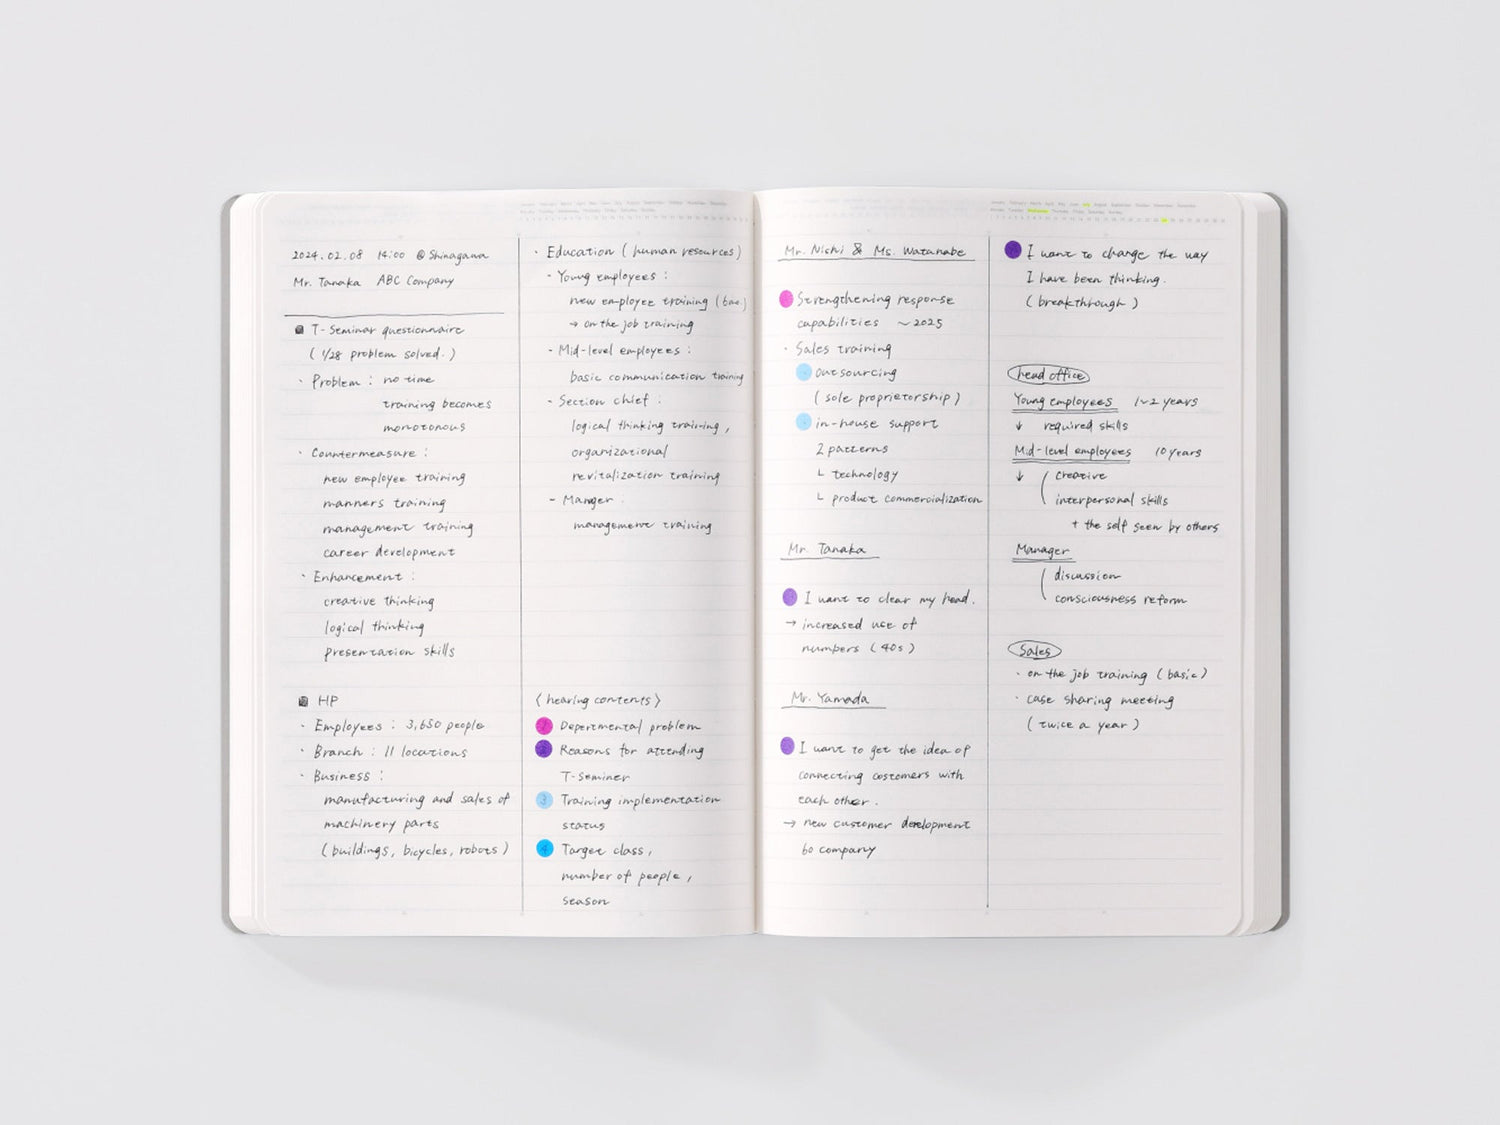 2024.02.08 14:00 @Shinagawa
Mr. Tanaka ABC Company
T-Seminar questionnaire
( 1/28 problem solved. )
· Problem : no time
training becomes
monotonous
· Countermeasure :
new employee training
manners training
management training
career development
· Enhancement :
creative thinking
logical thinking
presentation skills
HP
· Employees : 3,650 people
· Branch : 11 locations
· Business :
manufacturing and sales of
machinery parts
( buildings, bicycles, robots )
· Education ( human resources )
- Young employees :
new employee training
→ on the job training
- Mid-level employees :
basic communication training
- Section chief :
logical thinking training,
organizational
revitalization training
- Manger :
management training
< hearing contents >
Depertmental problem
Reasons for attending
T-seminer
3 Training implementation
status
4 Target class,
number of people,
season
Mr. Nishi & Ms. Watanabe
Strengthening response
capabilities ~2025
· Sales training
outsourcing
( sole proprietorship )
in-house support
2 patterns
└ technology
└ product commercialization
Mr. Tanaka
I want to clear my head.
→ increased use of
numbers ( 40s )
Mr. Yamada
I want to get the idea of
connecting costomers with
each other.
→ new customer development
60 company
I want to change the way
I have been thinking.
( breakthrough )
head office
Young employees 1~2 years
↓ required skills
Mid-level employees 10 years
↓ ( creative
interpersonal skills
+ the self seen by others
Manager
( discussion
consciousness reform
Sales
· on the job training ( basic )
· case sharing meeting
( twice a year )